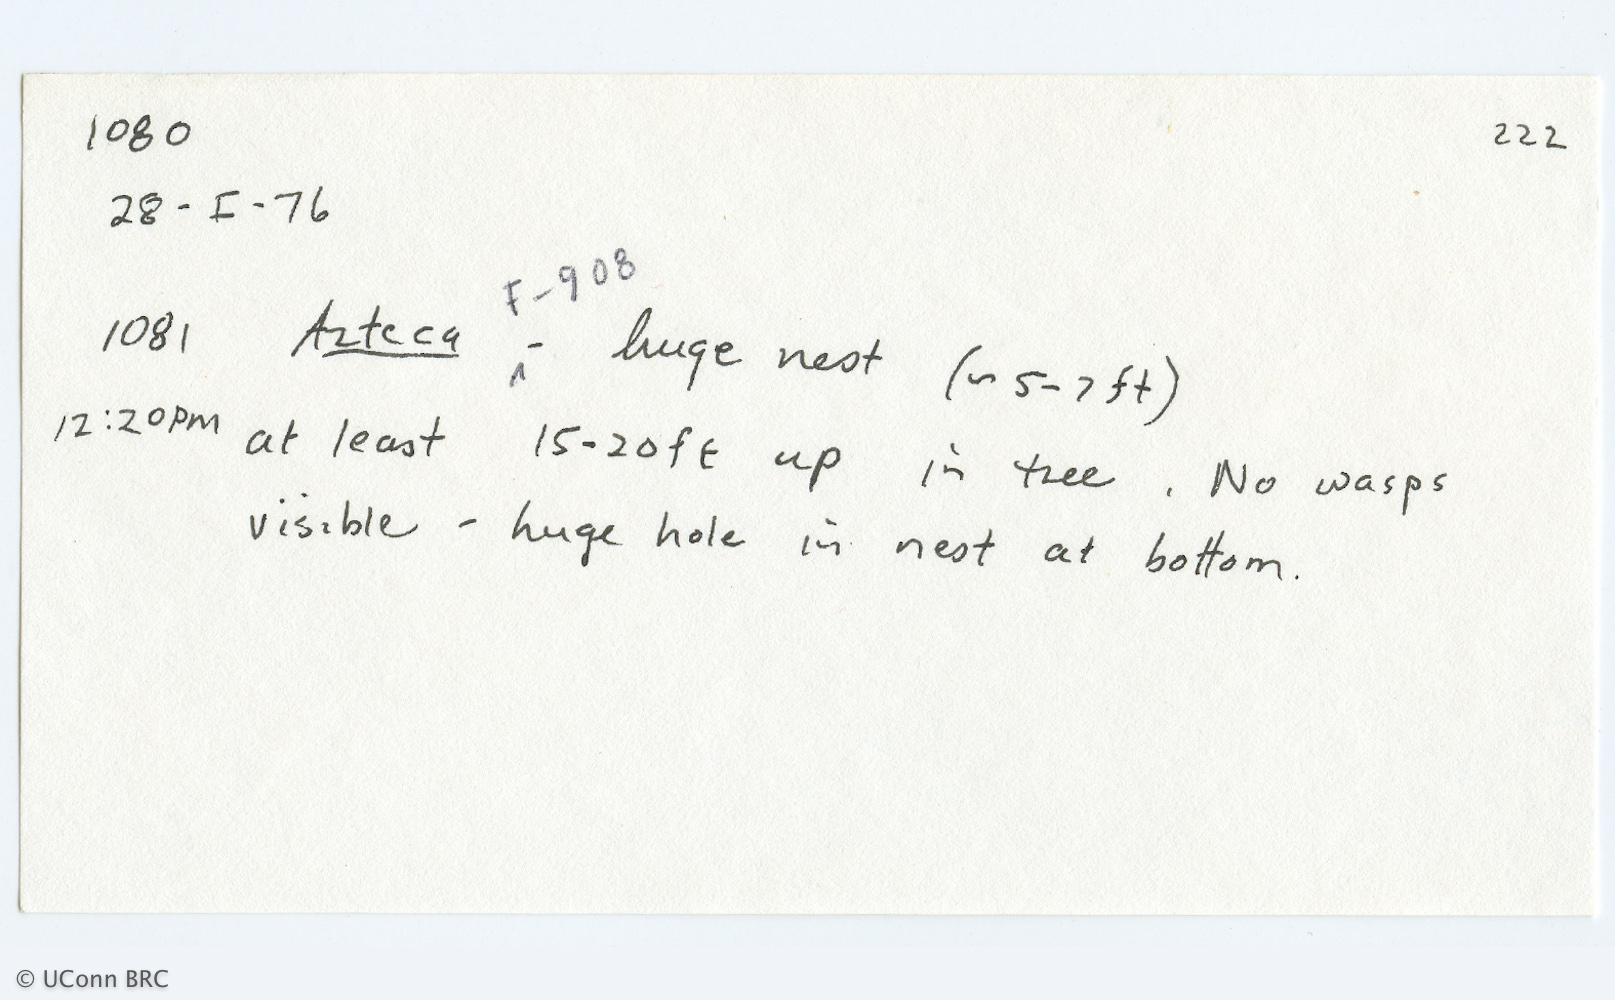 1080
222
28-I-76
F-908
1081 Azteca ^ - huge nest (~ 5-7ft)
12:20pm at least 15-20ft up in tree. No wasps
visible - huge hole in nest at bottom.
© UConn BRC